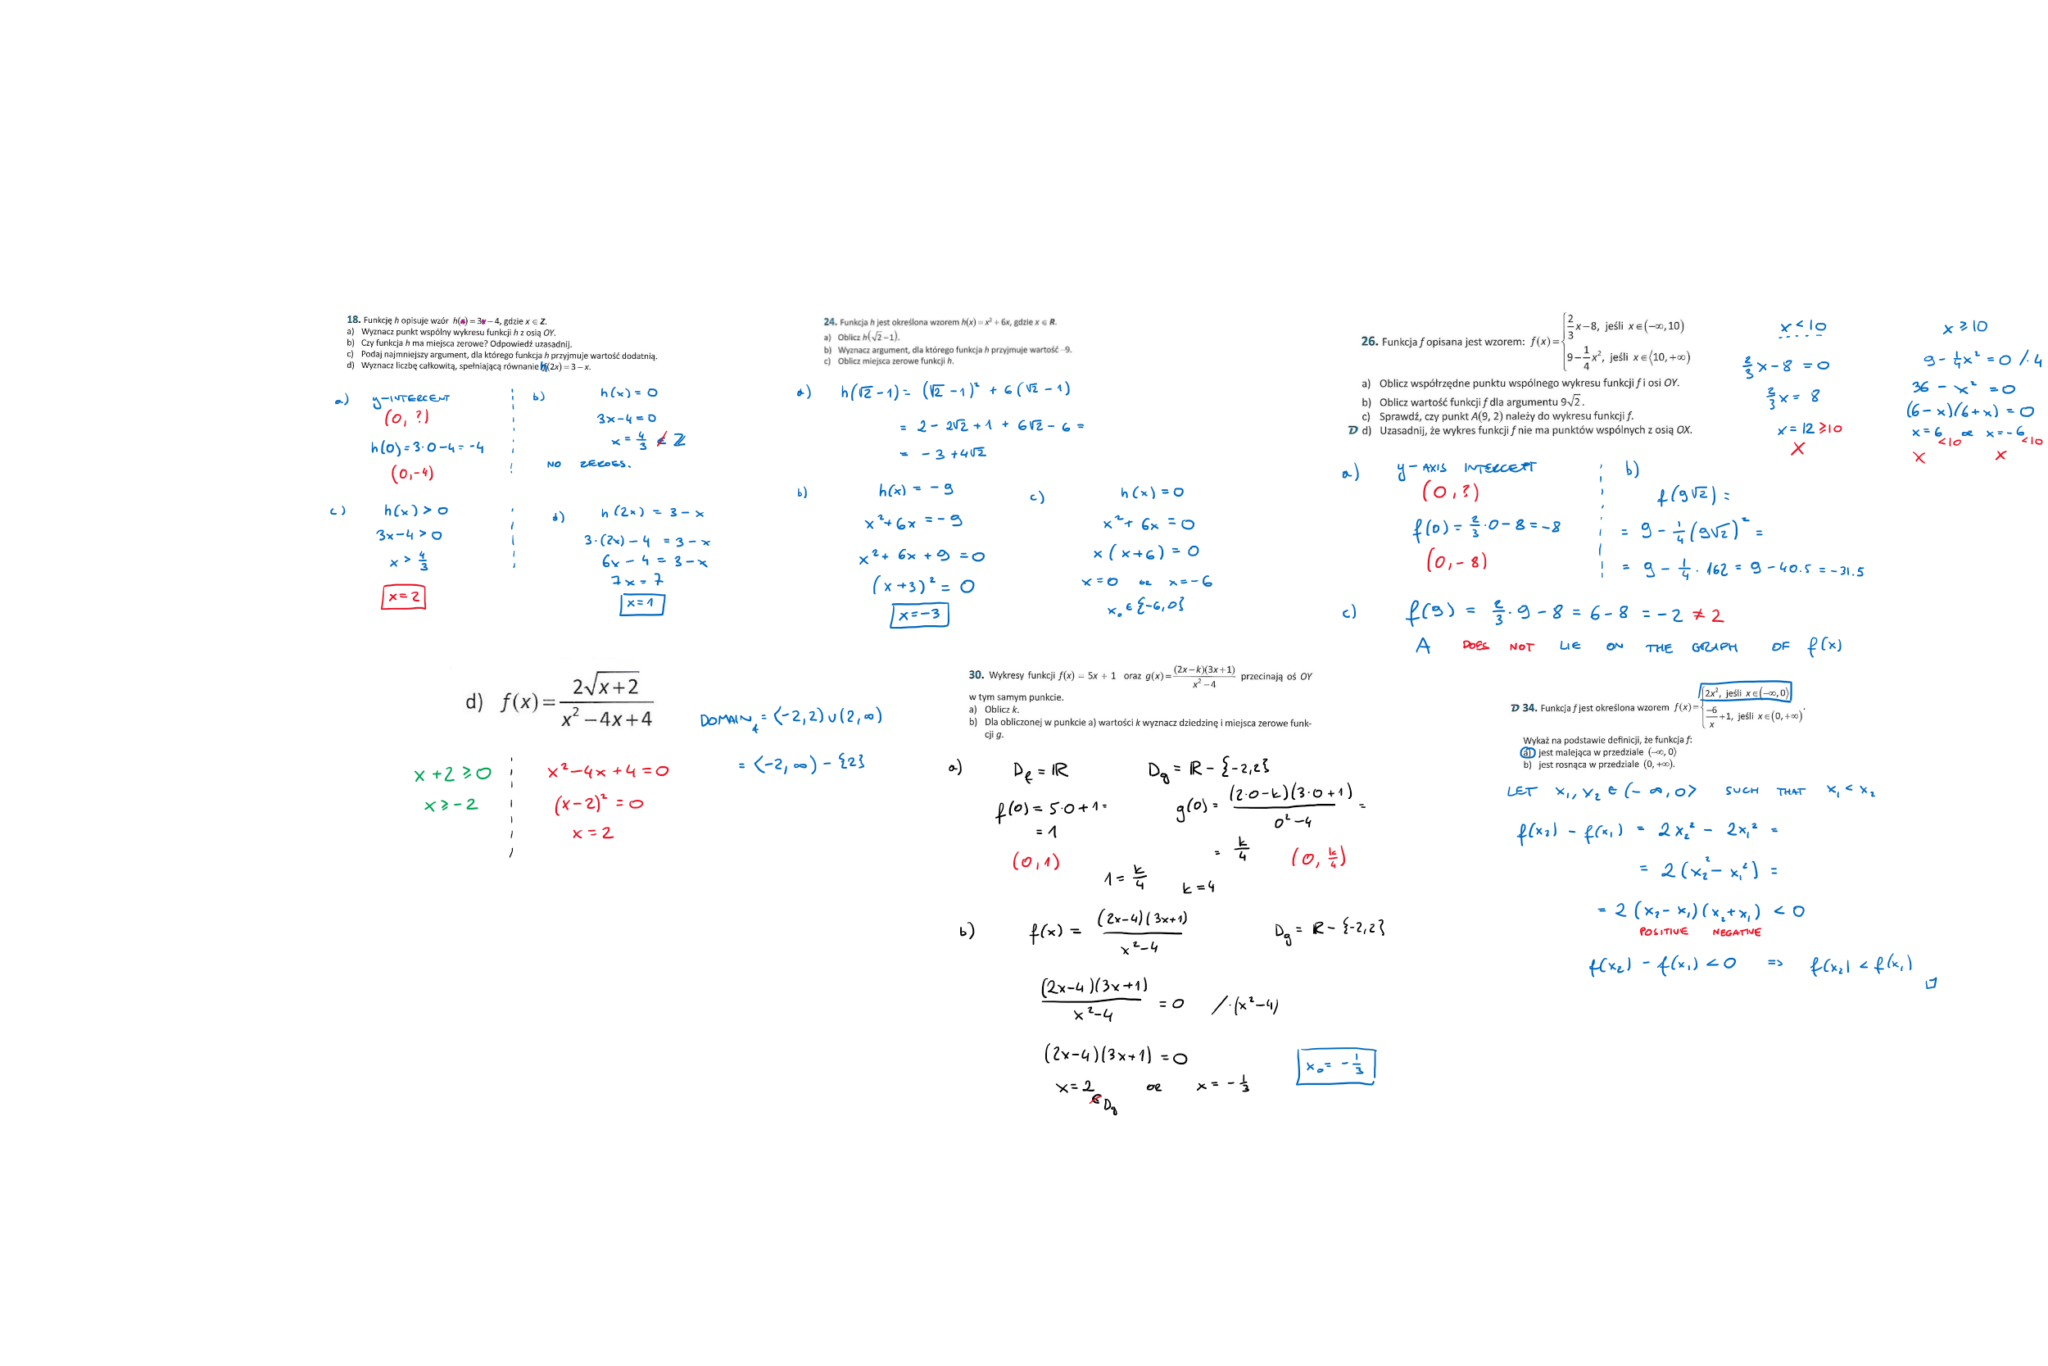 18. Funkcję h opisuje wzór h(x) = 3x – 4, gdzie x ∈ Z.
a) Wyznacz punkt wspólny wykresu funkcji h z osią OY.
b) Czy funkcja h ma miejsca zerowe? Odpowiedź uzasadnij.
c) Podaj najmniejszy argument, dla którego funkcja h przyjmuje wartość dodatnią.
d) Wyznacz liczbę całkowitą, spełniającą równanie h(2x) = 3 – x.
a) y-INTERCENT
(0, ?)
h(0) = 3·0-4 = -4
(0,-4)
b) h(x) = 0
3x-4=0
x = 4/3 ∉ Z
NO ZEROES.
c) h(x) > 0
3x-4 > 0
x > 4/3
x=2
d) h(2x) = 3-x
3·(2x) - 4 = 3-x
6x - 4 = 3-x
7x = 7
x=1
24. Funkcja h jest określona wzorem h(x) = x² + 6x, gdzie x ∈ R.
a) Oblicz h(√2 – 1).
b) Wyznacz argument, dla którego funkcja h przyjmuje wartość –9.
c) Oblicz miejsca zerowe funkcji h.
a) h(√2-1) = (√2-1)² + 6(√2-1)
= 2 - 2√2 + 1 + 6√2 - 6 =
= -3 + 4√2
b) h(x) = -9
x² + 6x = -9
x² + 6x + 9 = 0
(x+3)² = 0
x=-3
c) h(x) = 0
x² + 6x = 0
x(x+6) = 0
x=0 or x=-6
x₀ ∈ {-6,0}
26. Funkcja f opisana jest wzorem: f(x) = { 2/3 x – 8, jeśli x ∈ (–∞, 10)
9 – 1/4 x², jeśli x ∈ ⟨10, +∞)
a) Oblicz współrzędne punktu wspólnego wykresu funkcji f i osi OY.
b) Oblicz wartość funkcji f dla argumentu 9√2.
c) Sprawdź, czy punkt A(9, 2) należy do wykresu funkcji f.
D d) Uzasadnij, że wykres funkcji f nie ma punktów wspólnych z osią OX.
x < 10
2/3 x - 8 = 0
2/3 x = 8
x = 12 ≥ 10
X
x ≥ 10
9 - 1/4 x² = 0 /·4
36 - x² = 0
(6-x)(6+x) = 0
x=6 or x=-6
<10 <10
X X
a) y-AXIS INTERCEPT
(0,?)
f(0) = 2/3·0-8 = -8
(0,-8)
b) f(9√2) =
= 9 - 1/4 (9√2)² =
= 9 - 1/4 · 162 = 9 - 40.5 = -31.5
c) f(9) = 2/3·9 - 8 = 6-8 = -2 ≠ 2
A DOES NOT LIE ON THE GRAPH OF f(x)
d) f(x) = 2√x+2 / x² – 4x + 4
DOMAIN_f = ⟨-2,2) ∪ (2,∞)
= ⟨-2,∞) - {2}
x+2 ≥ 0
x ≥ -2
x² - 4x + 4 = 0
(x-2)² = 0
x = 2
30. Wykresy funkcji f(x) = 5x + 1 oraz g(x) = (2x – k)(3x + 1) / x² – 4 przecinają oś OY
w tym samym punkcie.
a) Oblicz k.
b) Dla obliczonej w punkcie a) wartości k wyznacz dziedzinę i miejsca zerowe funk-
cji g.
a) D_f = R D_g = R - {-2,2}
f(0) = 5·0+1 =
= 1
(0,1)
g(0) = (2·0-k)(3·0+1) / 0²-4 =
= k/4 (0, k/4)
1 = k/4 k=4
b) f(x) = (2x-4)(3x+1) / x²-4 D_g = R - {-2,2}
(2x-4)(3x+1) / x²-4 = 0 /·(x²-4)
(2x-4)(3x+1) = 0
x=2 or x = -1/3
∉ D_g
x₀ = -1/3
D 34. Funkcja f jest określona wzorem f(x) = { 2x², jeśli x ∈ (–∞, 0⟩
–6/x + 1, jeśli x ∈ (0, +∞)
Wykaż na podstawie definicji, że funkcja f:
a) jest malejąca w przedziale (–∞, 0⟩
b) jest rosnąca w przedziale (0, +∞).
LET x₁, x₂ ∈ (-∞,0⟩ SUCH THAT x₁ < x₂
f(x₂) - f(x₁) = 2x₂² - 2x₁² =
= 2(x₂² - x₁²) =
= 2(x₂-x₁)(x₂+x₁) < 0
POSITIVE NEGATIVE
f(x₂) - f(x₁) < 0 => f(x₂) < f(x₁)
□